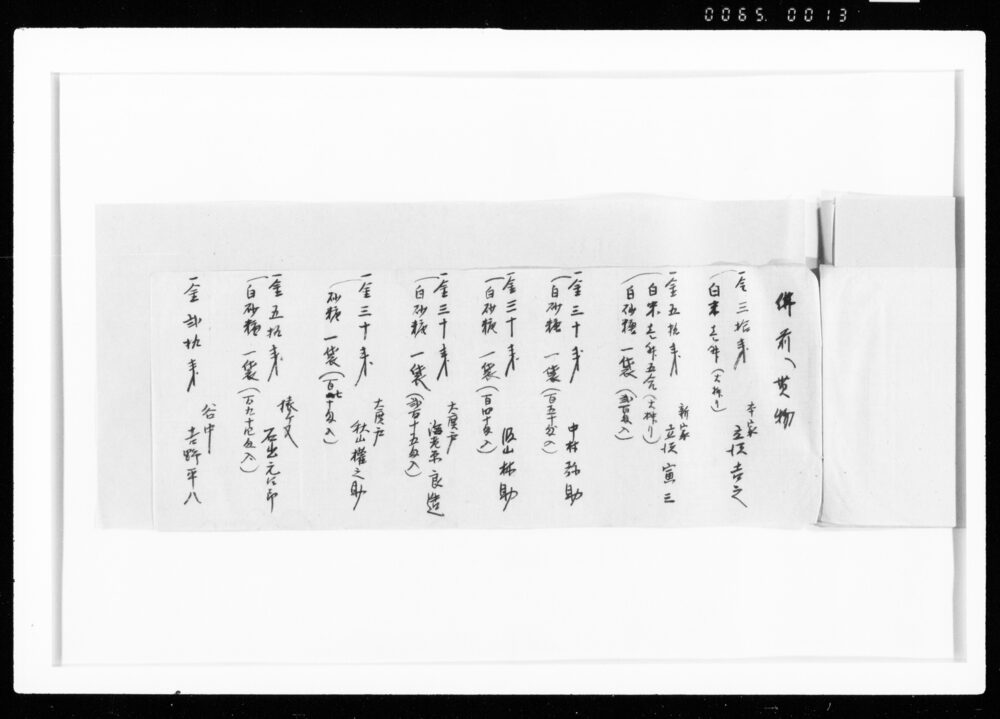 0065. 0013
佛前ヘ貰物
一金三拾銭
本家
立沢吉之
(白米壱升(大桝リ)
一金五拾銭
新家
立沢寅三
(白米壱升五合(大桝リ)
(白砂糖一袋(弐百匁入)
一金三十銭
中村弥助
(白砂糖一袋(百五十匁入)
一金三十銭
山林助
(白砂糖一袋(百四十匁入)
一金三十銭
大戸
海老原良造
(白砂糖一袋(弐百十五匁入)
一金三十銭
大戸
秋山權之助
(砂糖一袋(百十匁入)
一金五拾銭
石出元次郎
(白砂糖一袋(百九十匁入)
一金弐拾銭
谷中
吉野平八